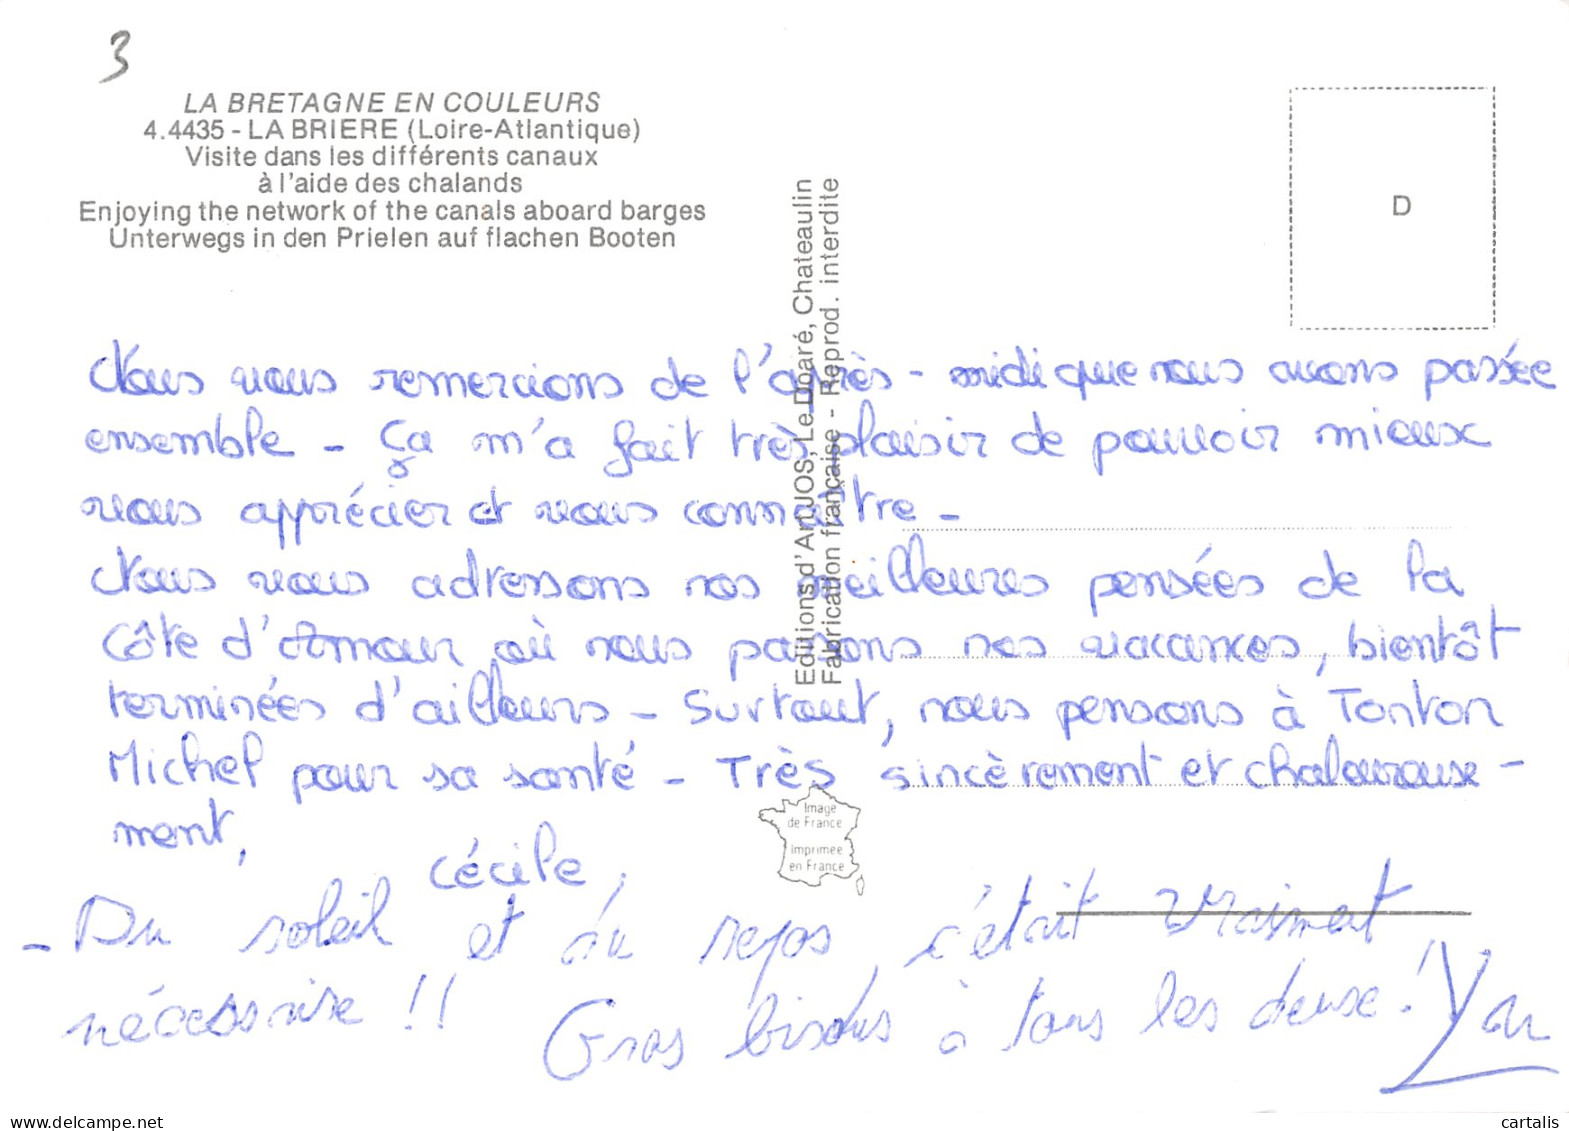 3
LA BRETAGNE EN COULEURS
4.4435 - LA BRIERE (Loire-Atlantique)
Visite dans les différents canaux
à l'aide des chalands
Enjoying the network of the canals aboard barges
Unterwegs in den Prielen auf flachen Booten
D
Editions d'Art JOS, Le Doaré, Chateaulin
Fabrication française - Reprod. interdite
Nous vous remercions de l'après-midi que nous avons passée
ensemble - Ça m'a fait très plaisir de pouvoir mieux
vous apprécier et vous connaître -
Nous vous adressons nos meilleures pensées de la
Côte d'Amour où nous passons nos vacances, bientôt
terminées d'ailleurs - Surtout, nous pensons à Tonton
Michel pour sa santé - Très sincèrement et chaleureuse-
ment,
Cécile,
Image
de France
Imprimée
en France
- Du soleil et du repos, c'était vraiment
nécessaire !! Gros bisous à tous les deux ! Yan
cartalis